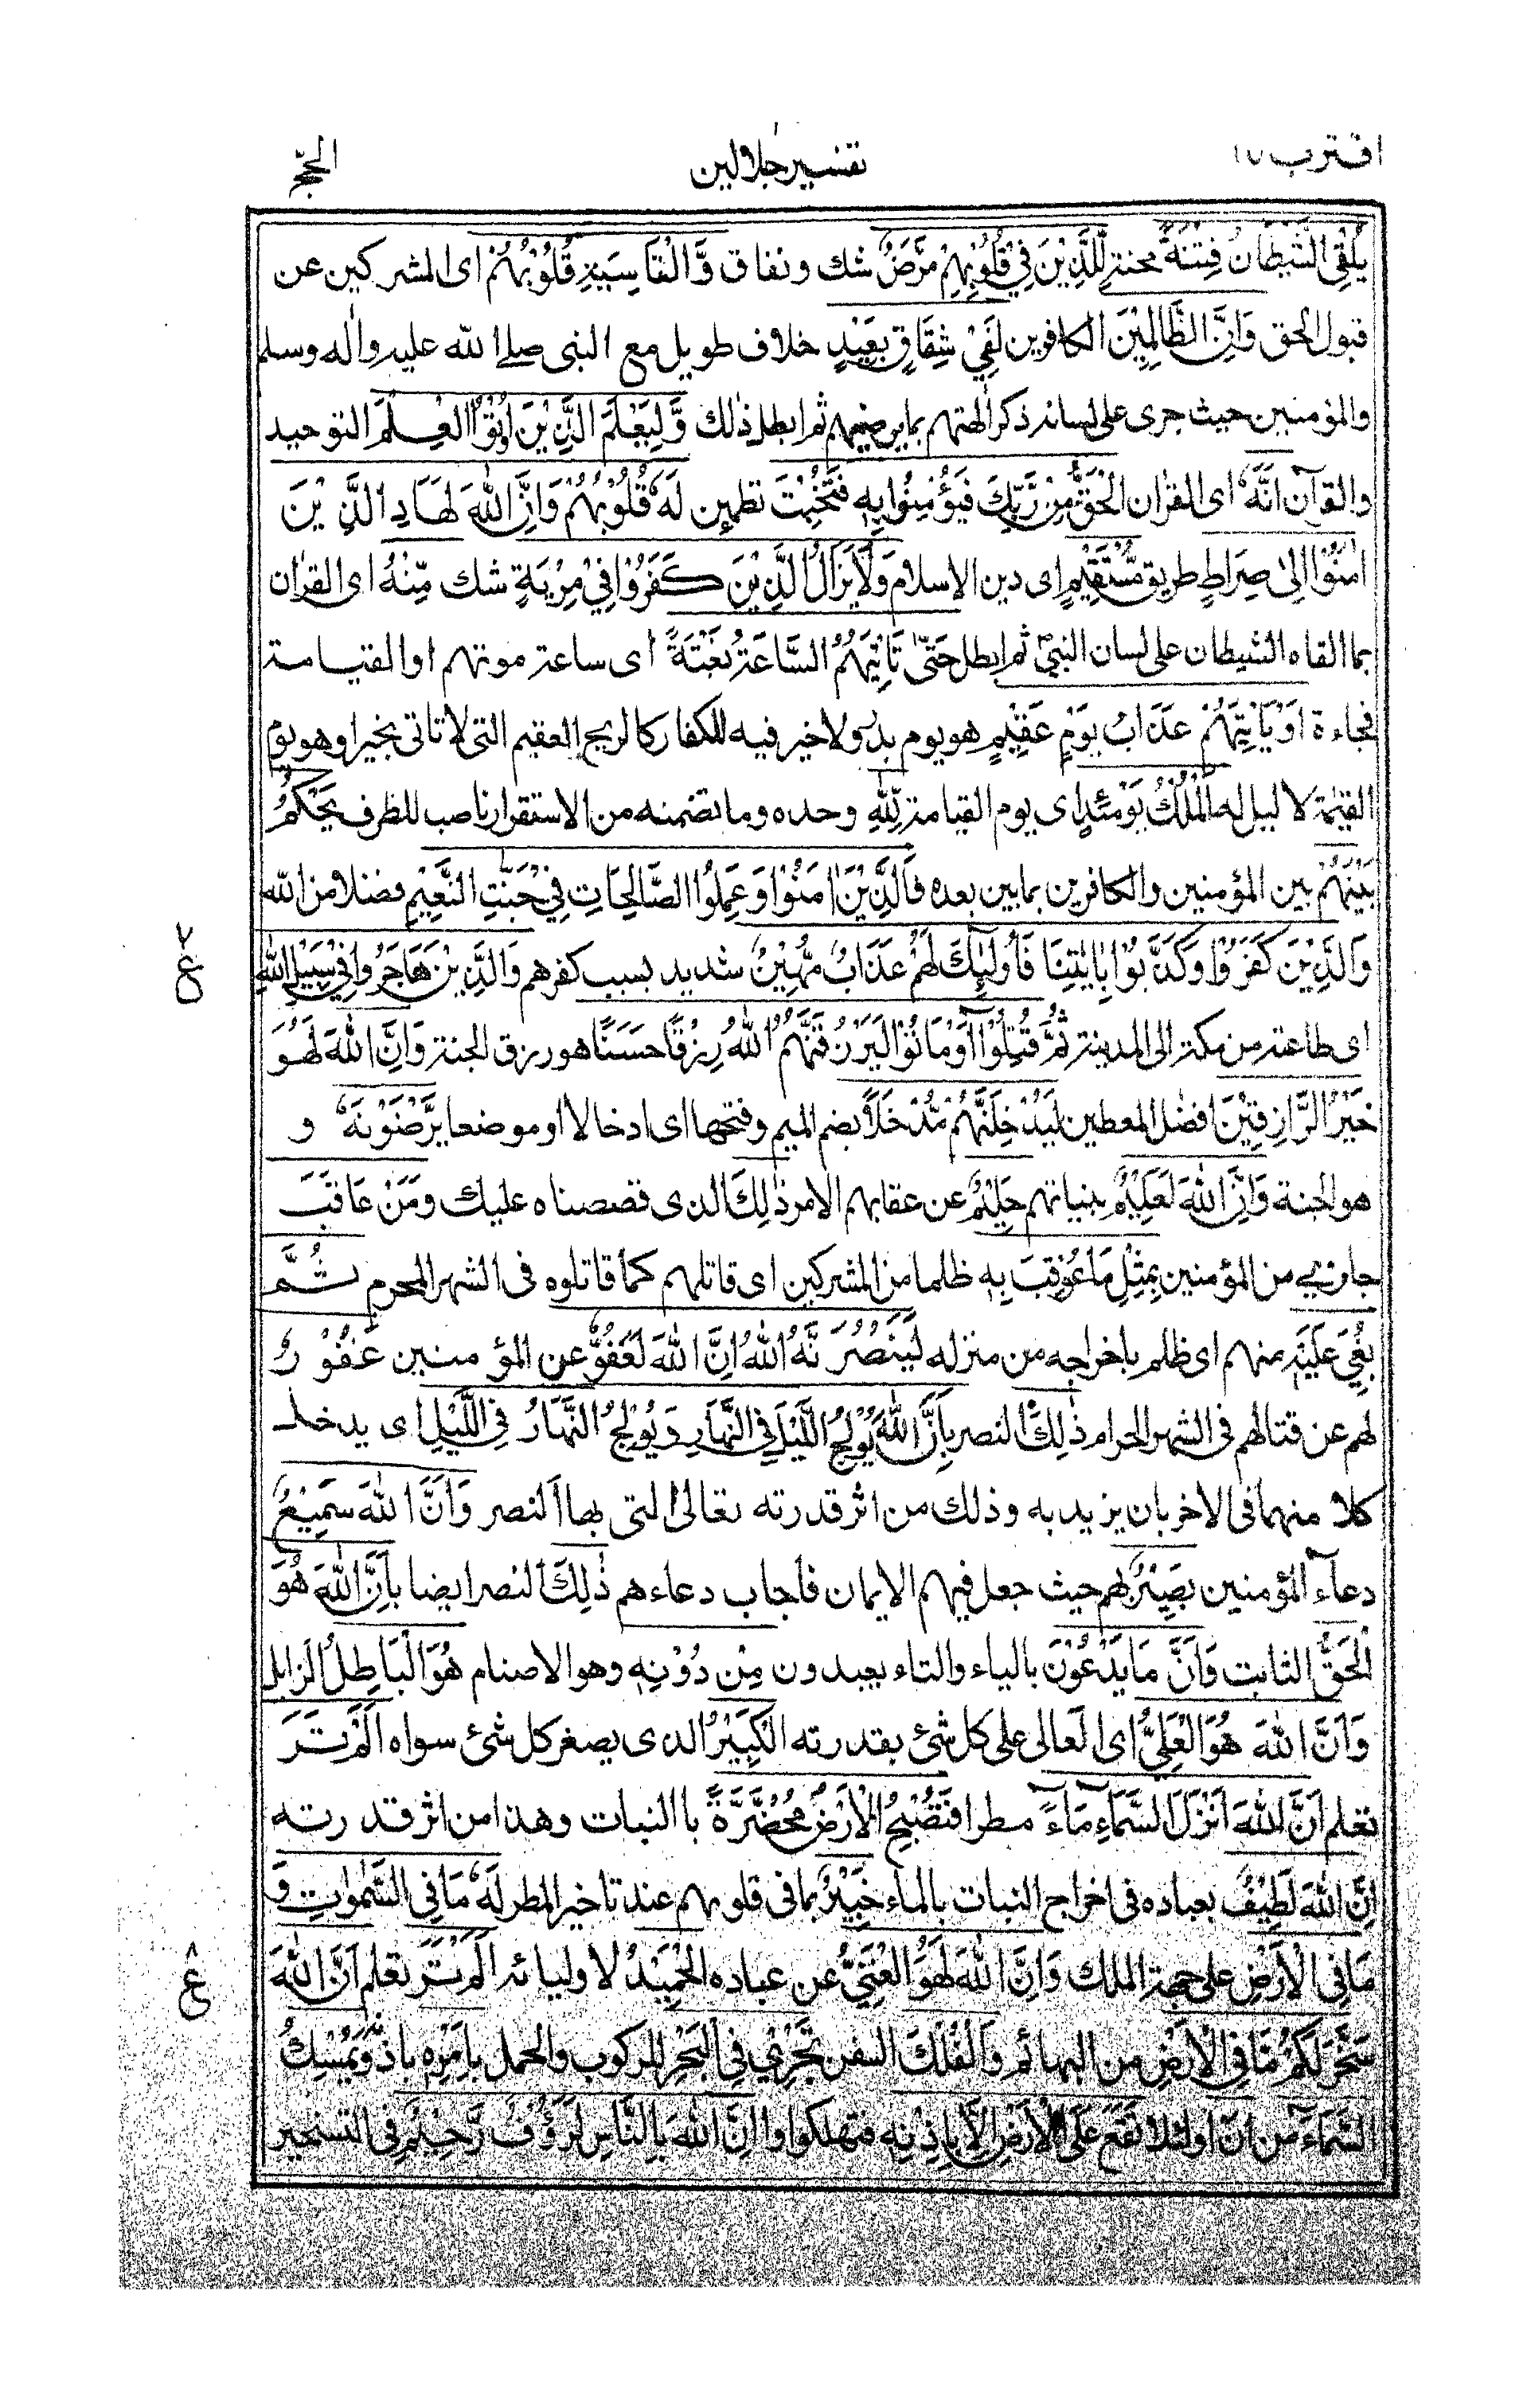 اقترب ١٧ تفسير جلالين الحج
يُلْقِى الشَّيْطَانُ فِتْنَةً محنة لِّلَّذِيْنَ فِيْ قُلُوْبِهِمْ مَّرَضٌ شك ونفاق وَّالْقَاسِيَةِ قُلُوْبُهُمْ اى المشركين عن
قبول الحق وَاِنَّ الظَّالِمِيْنَ الكافرين لَفِيْ شِقَاقٍ بَعِيْدٍ خلاف طويل مع النبى صلى الله عليه واٰله وسلم
والمؤمنين حيث جرى على لسانه ذكر اٰلهتهم بما يرضيهم ثم ابطل ذٰلك وَّلِيَعْلَمَ الَّذِيْنَ اُوْتُوا الْعِلْمَ التوحيد
والقرآن اَنَّهُ اى القراٰن الْحَقُّ مِنْ رَّبِّكَ فَيُؤْمِنُوْا بِهٖ فَتُخْبِتَ تطمئن لَهٗ قُلُوْبُهُمْ وَاِنَّ اللّٰهَ لَهَادِ الَّذِيْنَ
اٰمَنُوْا اِلٰى صِرَاطٍ طريق مُّسْتَقِيْمٍ اى دين الاسلام وَلَا يَزَالُ الَّذِيْنَ كَفَرُوْا فِيْ مِرْيَةٍ شك مِّنْهُ اى القراٰن
بما القاه الشيطان على لسان النبيؐ ثم ابطل حَتّٰى تَاْتِيَهُمُ السَّاعَةُ بَغْتَةً اى ساعة موتهم او القيامة
فجاءة اَوْ يَاْتِيَهُمْ عَذَابُ يَوْمٍ عَقِيْمٍ هو يوم بدر ولا خير فيه للكفار كالريح العقيم التى لا تاتى بخير او هو يوم
القيٰمة لا ليل له اَلْمُلْكُ يَوْمَئِذٍ اى يوم القيامة لِلّٰهِ وحده وما تضمنه من الاستقرار ناصب للظرف يَحْكُمُ
بَيْنَهُمْ بين المؤمنين والكافرين بما بين بعده فَالَّذِيْنَ اٰمَنُوْا وَعَمِلُوا الصَّالِحَاتِ فِيْ جَنّٰتِ النَّعِيْمِ فضلا من الله
وَالَّذِيْنَ كَفَرُوْا وَكَذَّبُوْا بِاٰيٰتِنَا فَاُولٰئِكَ لَهُمْ عَذَابٌ مُّهِيْنٌ شديد بسبب كفرهم وَالَّذِيْنَ هَاجَرُوْا فِيْ سَبِيْلِ اللّٰهِ
٧ ع
اى طاعته من مكة الى المدينة ثُمَّ قُتِلُوْا اَوْ مَاتُوْا لَيَرْزُقَنَّهُمُ اللّٰهُ رِزْقًا حَسَنًا هو رزق الجنة وَاِنَّ اللّٰهَ لَهُوَ
خَيْرُ الرَّازِقِيْنَ افضل المعطين لَيُدْخِلَنَّهُمْ مُّدْخَلًا بضم الميم وفتحها اى ادخالا او موضعا يَّرْضَوْنَهٗ و
هو الجنة وَاِنَّ اللّٰهَ لَعَلِيْمٌ بنياتهم حَلِيْمٌ عن عقابهم الامر ذٰلِكَ الذى قصصناه عليك وَمَنْ عَاقَبَ
جازى من المؤمنين بِمِثْلِ مَا عُوْقِبَ بِهٖ ظلما من المشركين اى قاتلهم كما قاتلوه فى الشهر المحرم ثُمَّ
بُغِيَ عَلَيْهِ منهم اى ظلم باخراجه من منزله لَيَنْصُرَنَّهُ اللّٰهُ اِنَّ اللّٰهَ لَعَفُوٌّ عن المؤمنين غَفُوْرٌ
لهم عن قتالهم فى الشهر الحرام ذٰلِكَ النصر بِاَنَّ اللّٰهَ يُوْلِجُ اللَّيْلَ فِي النَّهَارِ وَيُوْلِجُ النَّهَارَ فِي اللَّيْلِ اى يدخل
كلا منهما فى الاخر بان يزيد به وذلك من اثر قدرته تعالىٰ التى بها النصر وَاَنَّ اللّٰهَ سَمِيْعٌ
دعآء المؤمنين بَصِيْرٌ بهم حيث جعل فيهم الايمان فاجاب دعاءهم ذٰلِكَ النصر ايضا بِاَنَّ اللّٰهَ هُوَ
الْحَقُّ الثابت وَاَنَّ مَا يَدْعُوْنَ بالياء والتاء يعبدون مِنْ دُوْنِهٖ وهو الاصنام هُوَ الْبَاطِلُ الزايل
وَاَنَّ اللّٰهَ هُوَ الْعَلِيُّ اى العالى على كل شئ بقدرته الْكَبِيْرُ الذى يصغر كل شئ سواه اَلَمْ تَرَ
تعلم اَنَّ اللّٰهَ اَنْزَلَ مِنَ السَّمَآءِ مَآءً مطرا فَتُصْبِحُ الْاَرْضُ مُخْضَرَّةً باالنبات وهذا من اثر قدرته
اِنَّ اللّٰهَ لَطِيْفٌ بعباده فى اخراج النبات بالماء خَبِيْرٌ بما فى قلوبهم عند تاخير المطر لَهٗ مَا فِي السَّمٰوٰتِ وَ
مَا فِي الْاَرْضِ على جهة الملك وَاِنَّ اللّٰهَ لَهُوَ الْغَنِيُّ عن عباده الْحَمِيْدُ لاوليائه اَلَمْ تَرَ تعلم اَنَّ اللّٰهَ
٨ ع
سَخَّرَ لَكُمْ مَّا فِي الْاَرْضِ من البهائم وَالْفُلْكَ السفن تَجْرِيْ فِي الْبَحْرِ للركوب والحمل بِاَمْرِهٖ باذنه وَيُمْسِكُ
السَّمَآءَ من اَنْ او لئلا تَقَعَ عَلَى الْاَرْضِ اِلَّا بِاِذْنِهٖ فتهلكوا اِنَّ اللّٰهَ بِالنَّاسِ لَرَءُوْفٌ رَّحِيْمٌ فى التسخير